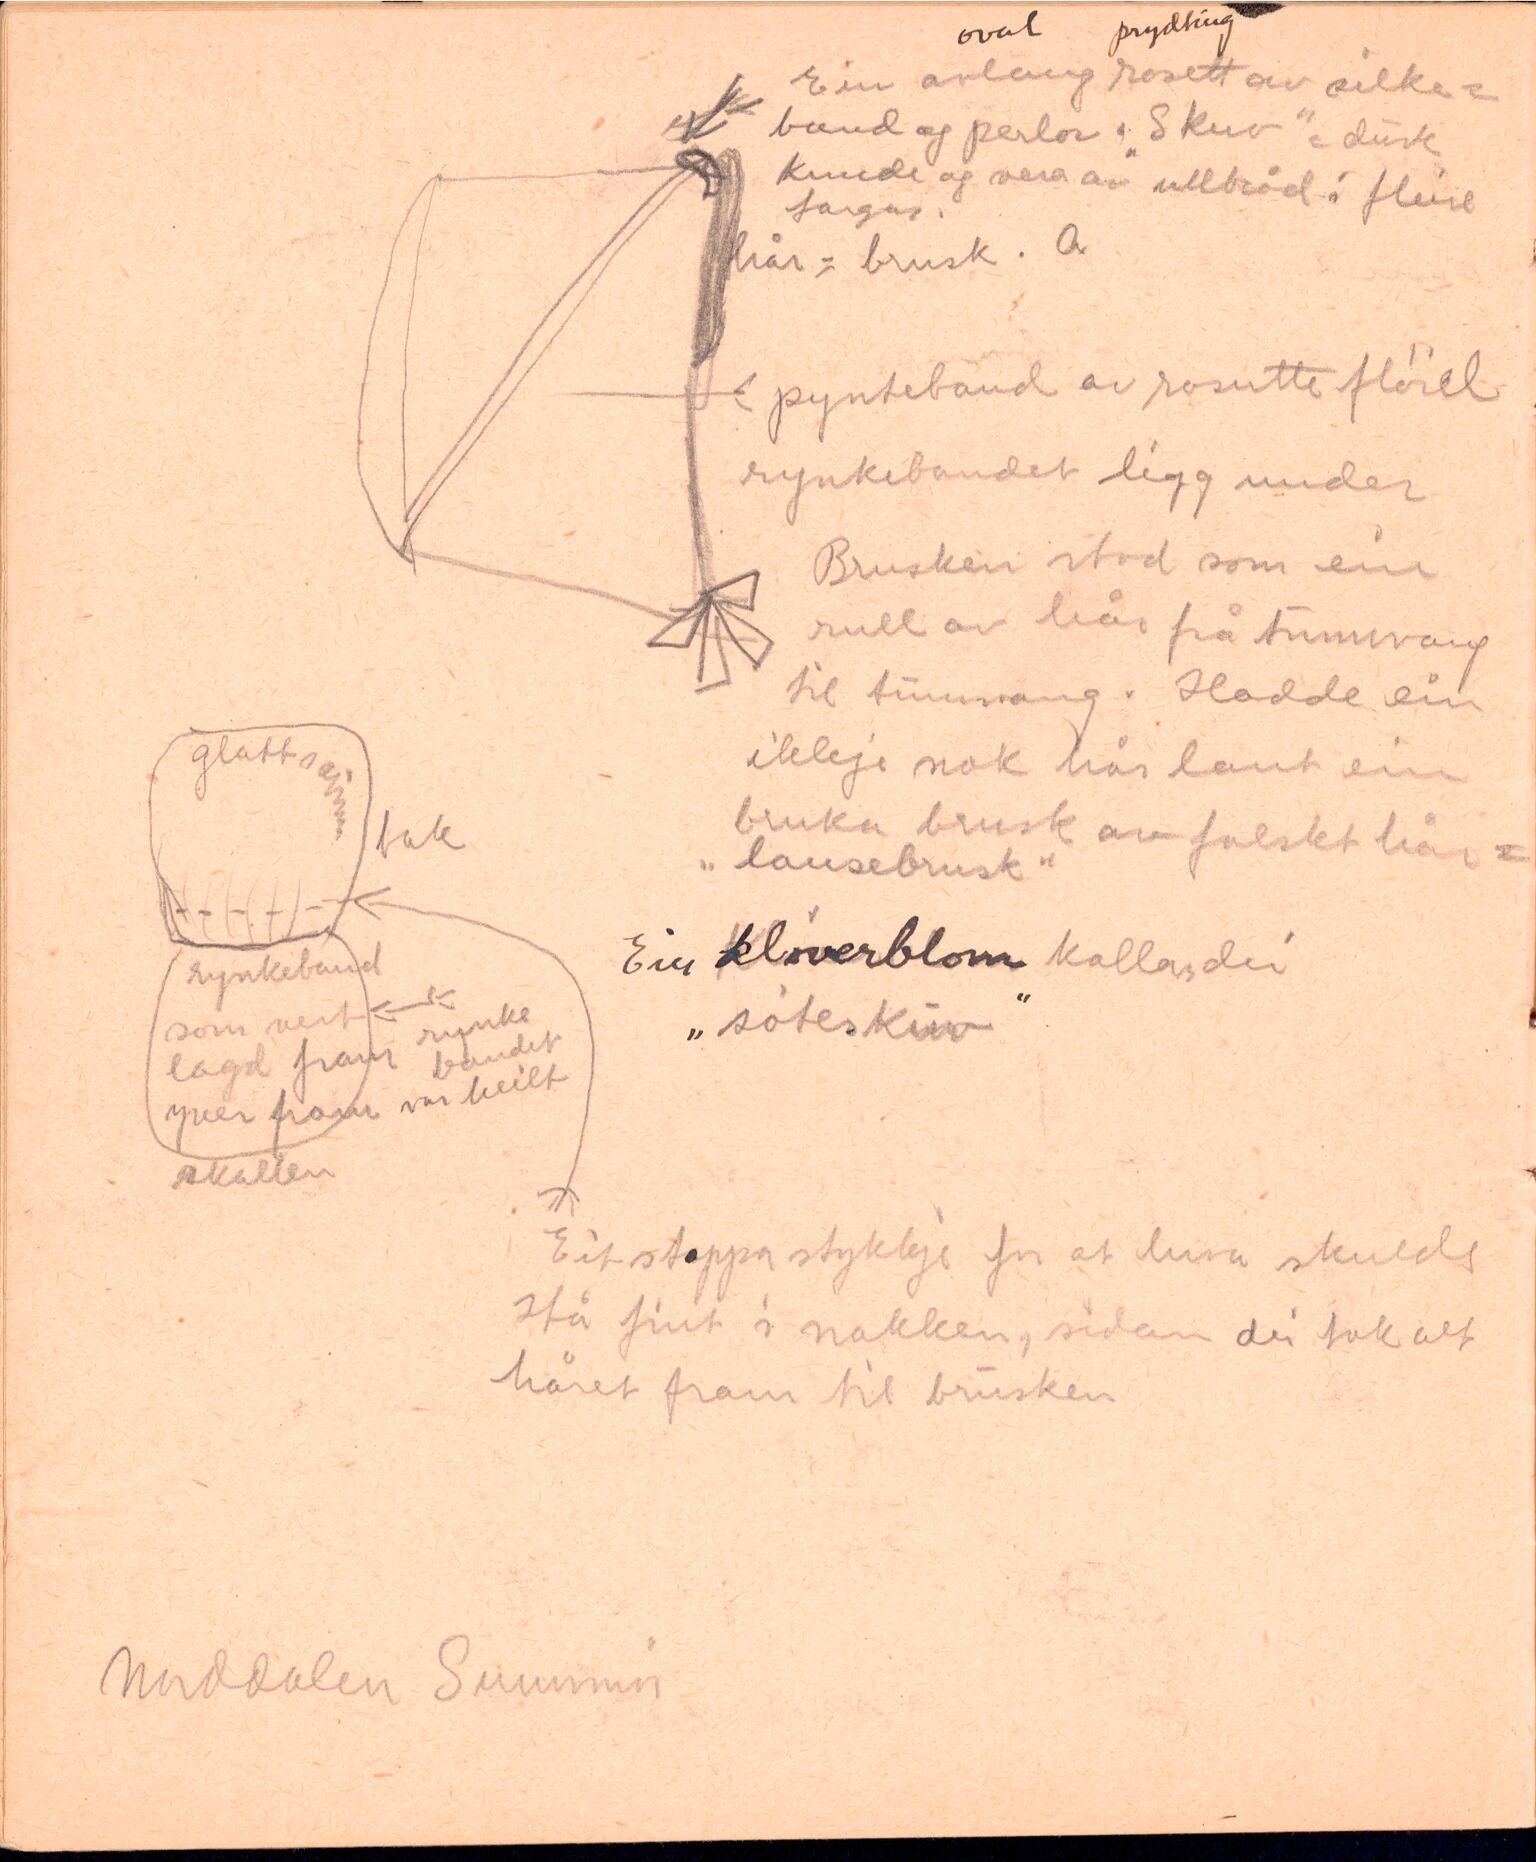 oval prydting
Ein avlang rosett av silke=
band og perlor. "Skuv" = dusk
kunde og vera av ullbród i fleire
fargar.
hår = brusk. a
pynteband av rosutte flöiel
rynkebandet ligg under
Brusken stod som ein
rull av hår frå tunnvang
til tunnvang. Hadde ein
ikkje nok hår laut ein
bruka brusk av falskt hår =
"lausebrusk"
Ein klöverblom kalla dei
"söteskuv"
glatt saum
bak
rynkeband
som vert
lagd fram
yver fram
skallen
rynke
bandet
var heilt
Eit stoppa stykkje for at luva skulde
stå fint i nakken, sidan dei tok alt
håret fram til brusken
Norddalen Sunnmör